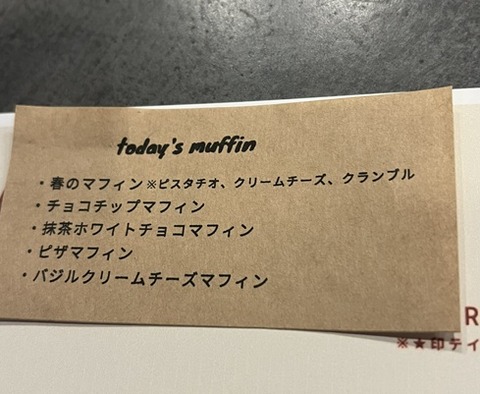 today's muffin
・春のマフィン ※ピスタチオ、クリームチーズ、クランブル
・チョコチップマフィン
・抹茶ホワイトチョコマフィン
・ピザマフィン
・バジルクリームチーズマフィン
R
※★印テイ